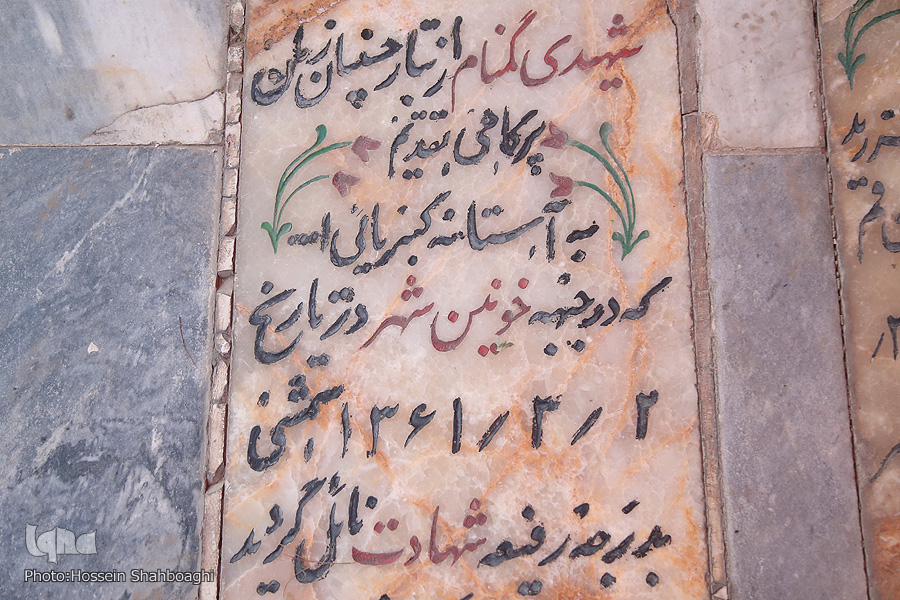 شهیدی گمنام از تبار حسینیان زمان
پر کاهی تقدیم
به آستانه کبریائی ا...
که در جبهه خونین شهر در تاریخ
۲ / ۳ / ۱۳۶۱ شمسی
بدرجه رفیعه شهادت نائل گردید
iqna
Photo:Hossein Shahboaghi